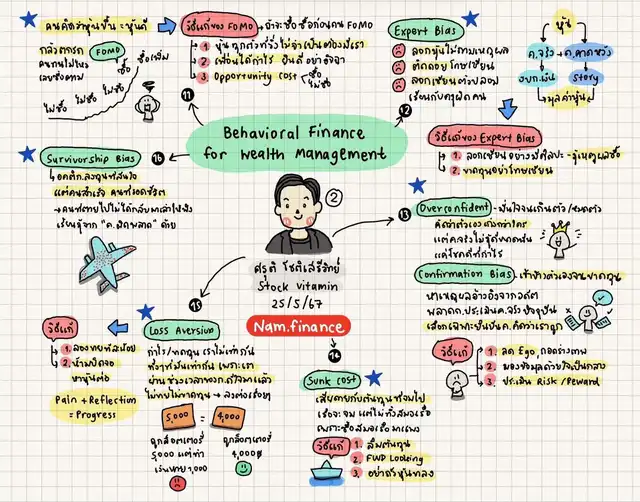 Behavioral Finance
for Wealth Management
②
ศรุติ โชติเสรีวิทย์
Stock vitamin
25/5/67
Nam.finance
11
คนคิดว่าหุ้นขึ้น = หุ้นดี
กลัวตกรถ
FOMO
คนทนไม่ไหว
เลยซื้อตาม
ไม่ซื้อ
ไม่ซื้อ
ไม่ซื้อ
ซื้อ
ซื้อเพิ่ม
วิธีแก้ของ FOMO
1. หุ้นทุกตัวที่วิ่งไม่จำเป็นต้องมีเรา
2. เพื่อนได้กำไร ยินดี อย่าอิจฉา
3. Opportunity Cost
ซื้อ
ไม่ซื้อ
12
Expert Bias
ลอกหุ้นไม่ถามเหตุผล
ติดดอยโทษเซียน
ลอกเซียนต้วยลอม
หุ้น
ค.จริง + ค.คาดหวัง
งบก.เงิน
Story
มูลค่าหุ้น
วิธีแก้ของ Expert Bias
1. ลอกเซียนอย่างมีศิลปะ - รู้เหตุผลซื้อ
2. ขาดทุนอย่าโทษเซียน
13
Overconfident - มั่นใจจนเกินตัว/หมดตัว
คิดว่าตัวเองเก่งกว่าใคร
แค่โชคดีที่กำไร
Confirmation Bias - เข้าข้างตัวเองจนขาดทุน
หาเหตุผลอ้างอิงจากอดีต
พลาดการประเมินค.จริงปัจจุบัน
เลือกเฉพาะยืนยันค.คิดว่าเราถูก
วิธีแก้
1. ลด Ego ถอดร่างเทพ
2. มองข้อมูลด้วยใจเป็นกลาง
3. ประเมิน Risk/Reward
14
Sunk cost
เสียดายกับต้นทุนที่จมไป
เรือจะจม แต่ไม่ทิ้งสมอเรือ
เพราะซื้อสมอเรือมาแพง
วิธีแก้
1. ลืมต้นทุน
2. FWD Looking
3. อย่าถัวหุ้นขาลง
15
Loss Aversion
กำไร/ขาดทุน เราไม่เท่ากัน
5,000 = 4,000
ถูกลอตเตอรี่
5,000 แต่ทำ
เงินหาย 1,000
ถูกลอตเตอรี่
4,000฿
วิธีแก้
Pain + Reflection
= Progress
16
Survivorship Bias
อคติก.ลงทุนที่สนใจ
แต่คนสำเร็จ คนที่รอดชีวิต
→ คนที่ตายไปไม่ได้กลับมาเล่าให้ฟัง
เรียนรู้จาก "ค.ผิดพลาด" ด้วย